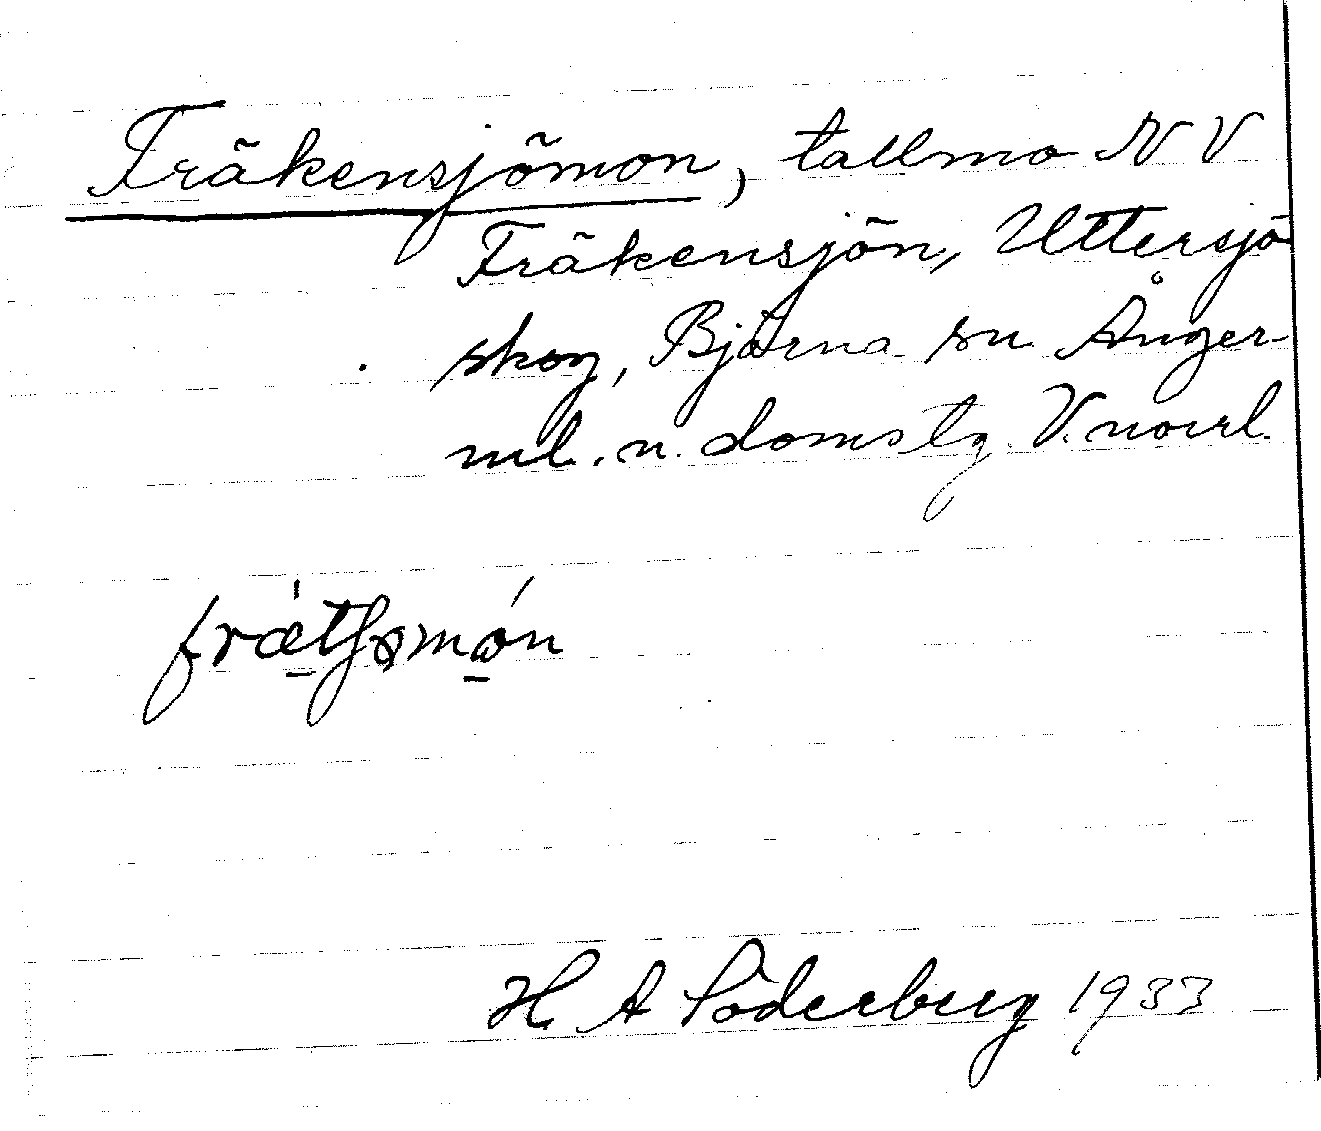 Fräkensjömon, tallmo NV
Fräkensjön, Uttersjö
skog, Björna sn Ånger-
ml. n. domstg. V. norrl.
H. A Söderberg 1933